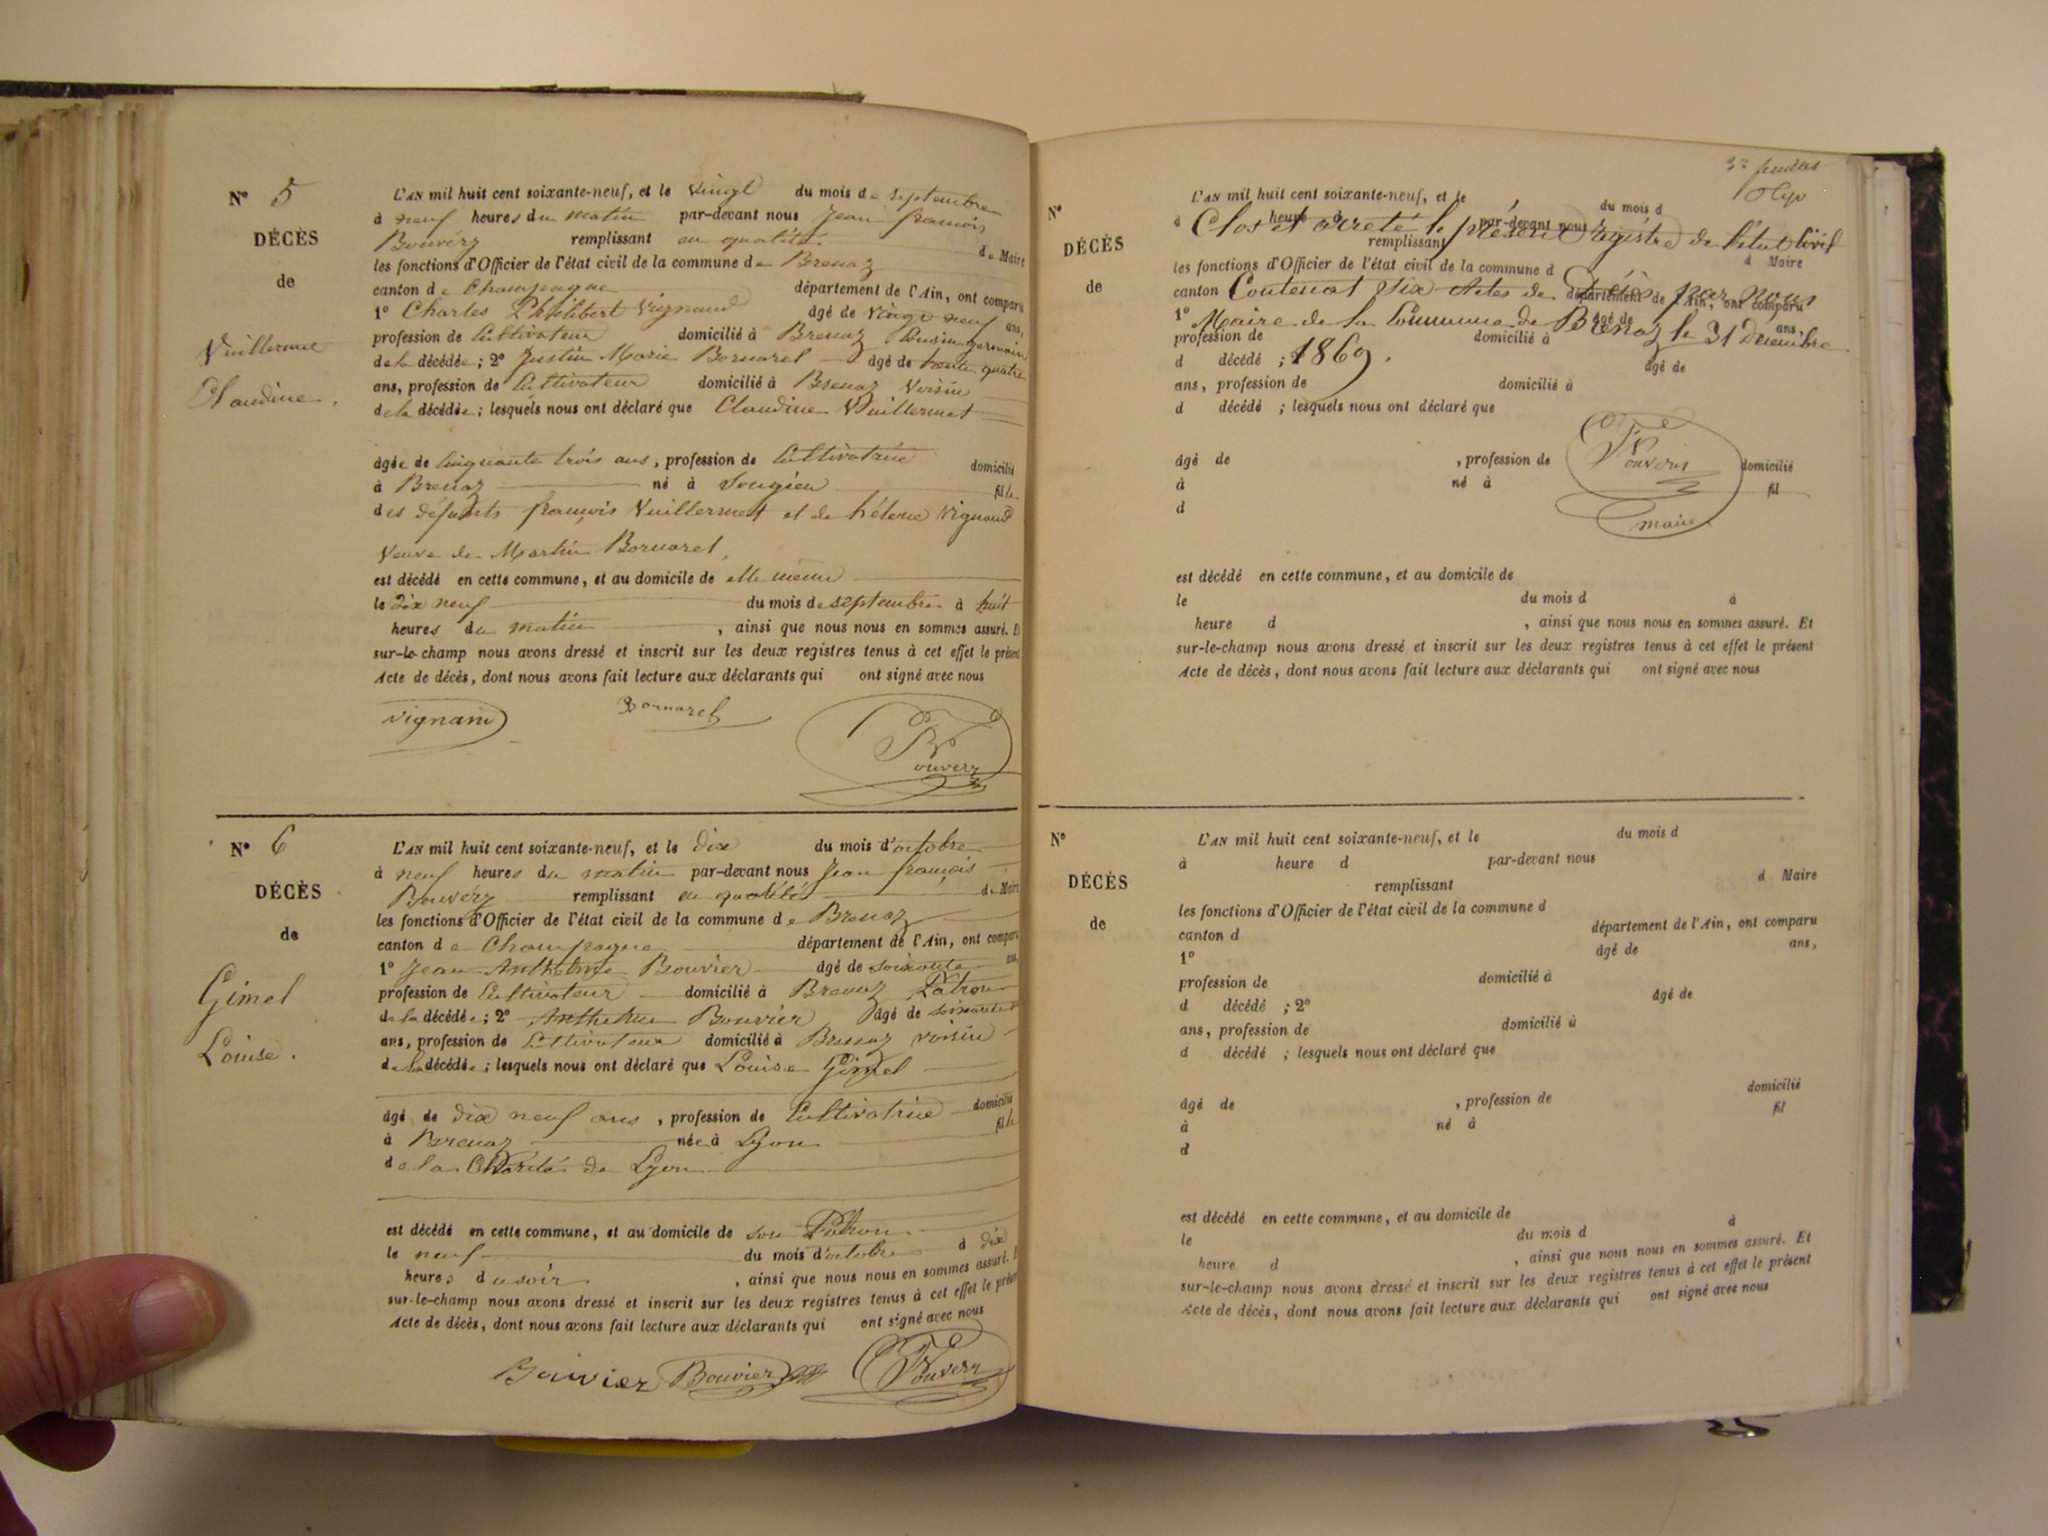 N° 5
DÉCÈS
de
Vuillermet
Claudine.
L'AN mil huit cent soixante-neuf, et le vingt du mois de septembre
à neuf heures du matin par-devant nous Jean françois
Bouvéry remplissant en qualité de Maire
les fonctions d'Officier de l'état civil de la commune de Brenaz
canton de Champagne département de l'Ain, ont comparu
1° Charles Philibert Vignand âgé de vingt neuf ans,
profession de Cultivateur domicilié à Brenaz Cousin germain
de la décédée ; 2° Justin Marie Bornarel âgé de trente quatre
ans, profession de Cultivateur domicilié à Brenaz Voisin
de la décédée ; lesquels nous ont déclaré que Claudine Vuillermet
âgée de Cinquante trois ans, profession de Cultivatrice domicilié
à Brenaz né à Songieu fille
des défunts françois Vuillermet et de hélène Vignand
Veuve de Martin Bornarel,
est décédé en cette commune, et au domicile de elle même
le dix neuf du mois de septembre à huit
heures du matin, ainsi que nous nous en sommes assuré. Et
sur-le-champ nous avons dressé et inscrit sur les deux registres tenus à cet effet le présent
Acte de décès, dont nous avons fait lecture aux déclarants qui ont signé avec nous
Vignand Bornarel Bouvéry
N° 6
DÉCÈS
de
Gimel
Louise.
L'AN mil huit cent soixante-neuf, et le dix du mois d'octobre
à neuf heures du matin par-devant nous Jean françois
Bouvéry remplissant en qualité de Maire
les fonctions d'Officier de l'état civil de la commune de Brenaz
canton de Champagne département de l'Ain, ont comparu
1° Jean Anthelme Bouvier âgé de soixante ans
profession de Cultivateur domicilié à Brenaz Patron
de la décédée ; 2° Anthelme Bouvier âgé de soixante
ans, profession de Cultivateur domicilié à Brenaz voisin
de la décédée ; lesquels nous ont déclaré que Louise Gimel
âgé de dix neuf ans, profession de Cultivatrice domicilié
à Brenaz née à Lyon fille
de la Charité de Lyon
est décédé en cette commune, et au domicile de son Patron
le neuf du mois d'octobre à dix
heures du soir, ainsi que nous nous en sommes assuré. E
sur-le-champ nous avons dressé et inscrit sur les deux registres tenus à cet effet le présent
Acte de décès, dont nous avons fait lecture aux déclarants qui ont signé avec nous
Bouvier Bouvier Bouvéry
N°
DÉCÈS
de
L'AN mil huit cent soixante-neuf, et le du mois d
à heure d par-devant nous
Clos et arreté le présent registre de l'état Civil
remplissant d Maire
les fonctions d'Officier de l'état civil de la commune d
canton département de l'Ain, ont comparu
Contenat Six Actes de Décès par nous
1° âgé de ans,
Maire de la Commune de Brenaz le 31 Décembre
profession de domicilié à
d décédé ; 1869. âgé de
ans, profession de domicilié à
d décédé ; lesquels nous ont déclaré que
âgé de , profession de domicilié
à né à fil
d
Bouvéry
maire
est décédé en cette commune, et au domicile de
le du mois d à
heure d , ainsi que nous nous en sommes assuré. Et
sur-le-champ nous avons dressé et inscrit sur les deux registres tenus à cet effet le présent
Acte de décès, dont nous avons fait lecture aux déclarants qui ont signé avec nous
N°
DÉCÈS
de
L'AN mil huit cent soixante-neuf, et le du mois d
à heure d par-devant nous
remplissant d Maire
les fonctions d'Officier de l'état civil de la commune d
canton d département de l'Ain, ont comparu
1° âgé de ans,
profession de domicilié à
d décédé ; 2° âgé de
ans, profession de domicilié à
d décédé ; lesquels nous ont déclaré que
âgé de , profession de domicilié
à né à fil
d
est décédé en cette commune, et au domicile de
le du mois d à
heure d , ainsi que nous nous en sommes assuré. Et
sur-le-champ nous avons dressé et inscrit sur les deux registres tenus à cet effet le présent
Acte de décès, dont nous avons fait lecture aux déclarants qui ont signé avec nous